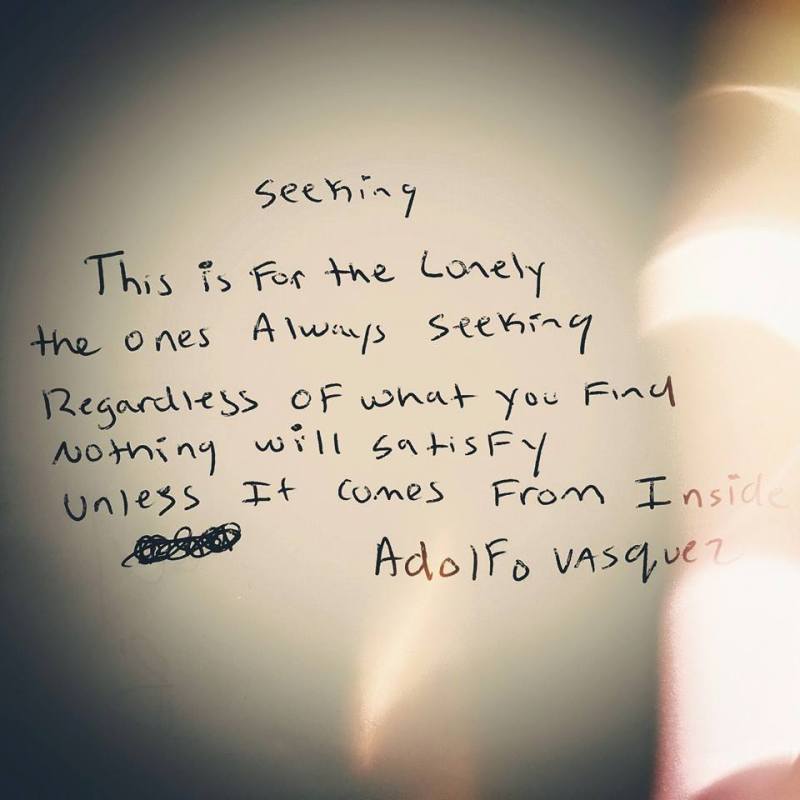 seeking
This is For the Lonely
the ones Always seeking
Regardless of what you Find
Nothing will satisfy
unless It comes From Inside
Adolfo VASquez